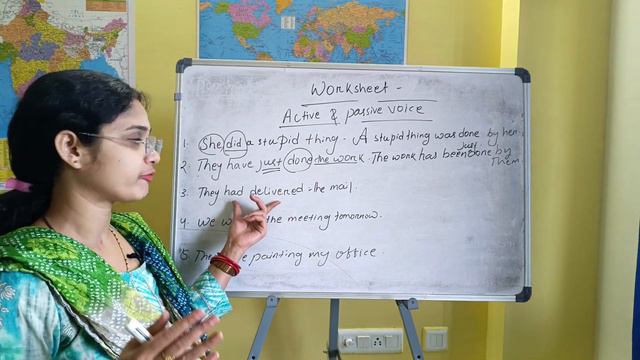 Worksheet -
Active & passive voice
1. She did a stupid thing. A stupid thing was done by her.
2. They have just done the work. The work has been just done by Them
3. They had delivered the mail.
4. We the meeting tomorrow.
5. painting my office.